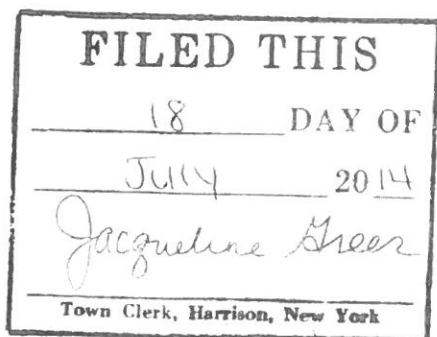 FILED THIS
18 DAY OF
July 20 14
Jacqueline Greer
Town Clerk, Harrison, New York